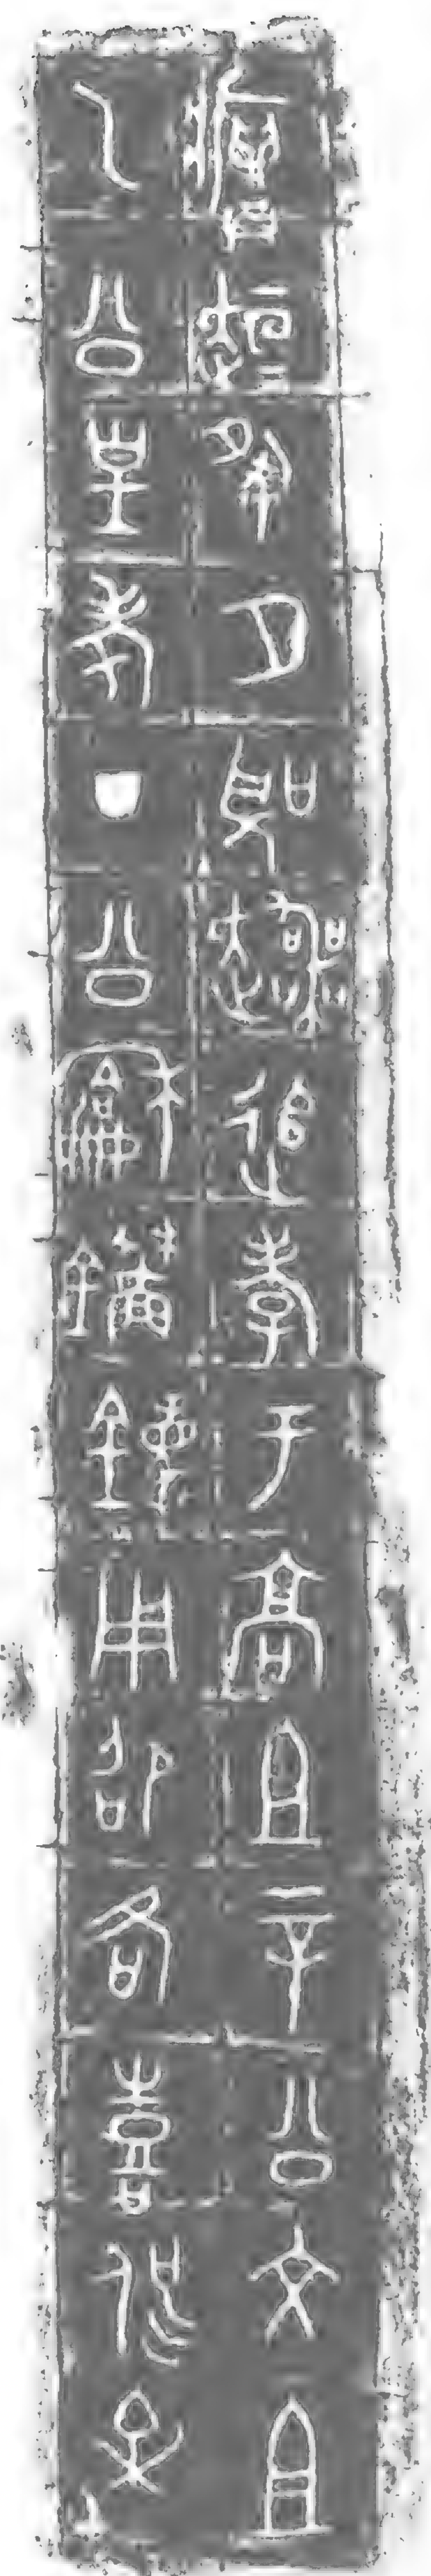 𤼈趄=夙夕聖趩追孝于高且辛公文且
乙公皇考丁公龢林鐘用卲各喜侃樂